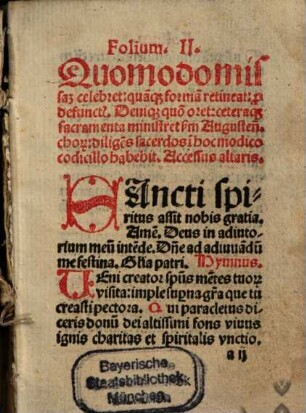 Folium. II.
Quomodo mis
sas celebret: quãqʒ formã retineat: ꝓ
defunct. Deniqʒ quõ oret: ceteraqʒ
sacramenta ministret sm Augusteñ.
choꝝ: diligẽs sacerdos ĩ hoc modico
codicillo habebit. Accessus altaris.
SAncti spi-
ritus assit nobis gratia.
Amẽ. Deus in adiuto-
rium meũ intẽde. Dñe ad adiuuãdũ
me festina. Glia patri. Hymnus.
VEni creator spũs mẽtes tuoꝝ
visita: imple supna grã que tu
creasti pectora. Qui paracletus di-
ceris donũ dei altissimi fons viuus
ignis charitas et spiritalis vnctio.
a ij
Bayerische
Staatsbibliothek
München